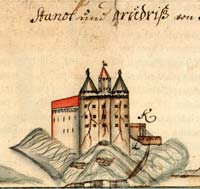 Standt und grŭdriß von
R